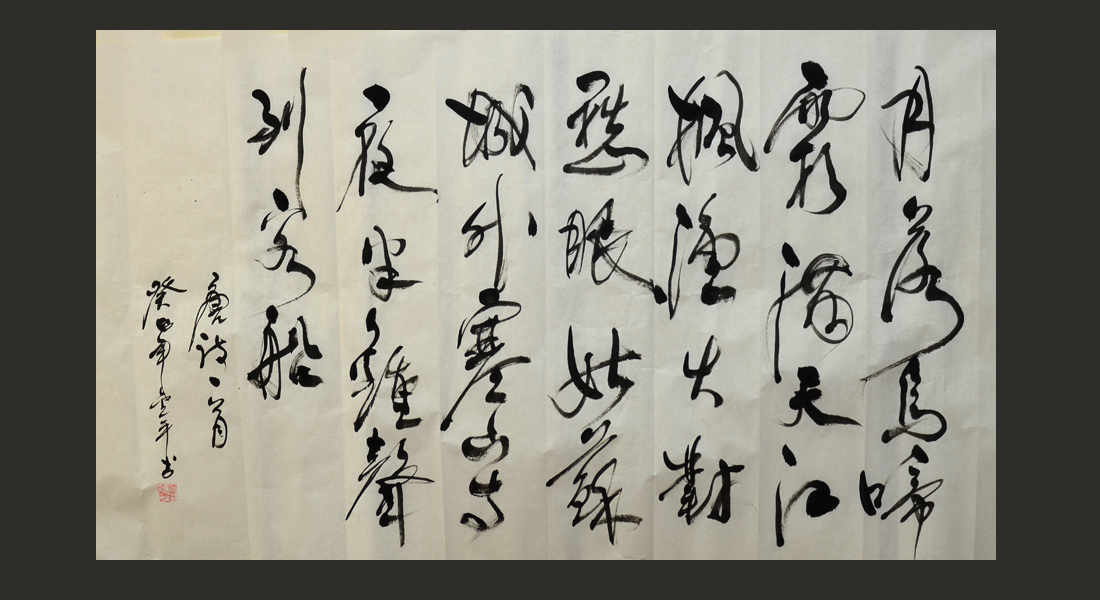 月落烏啼
霜滿天江
楓漁火對
愁眠姑蘇
城外寒山寺
夜半鐘聲
到客船
唐詩一首
癸巳年平书